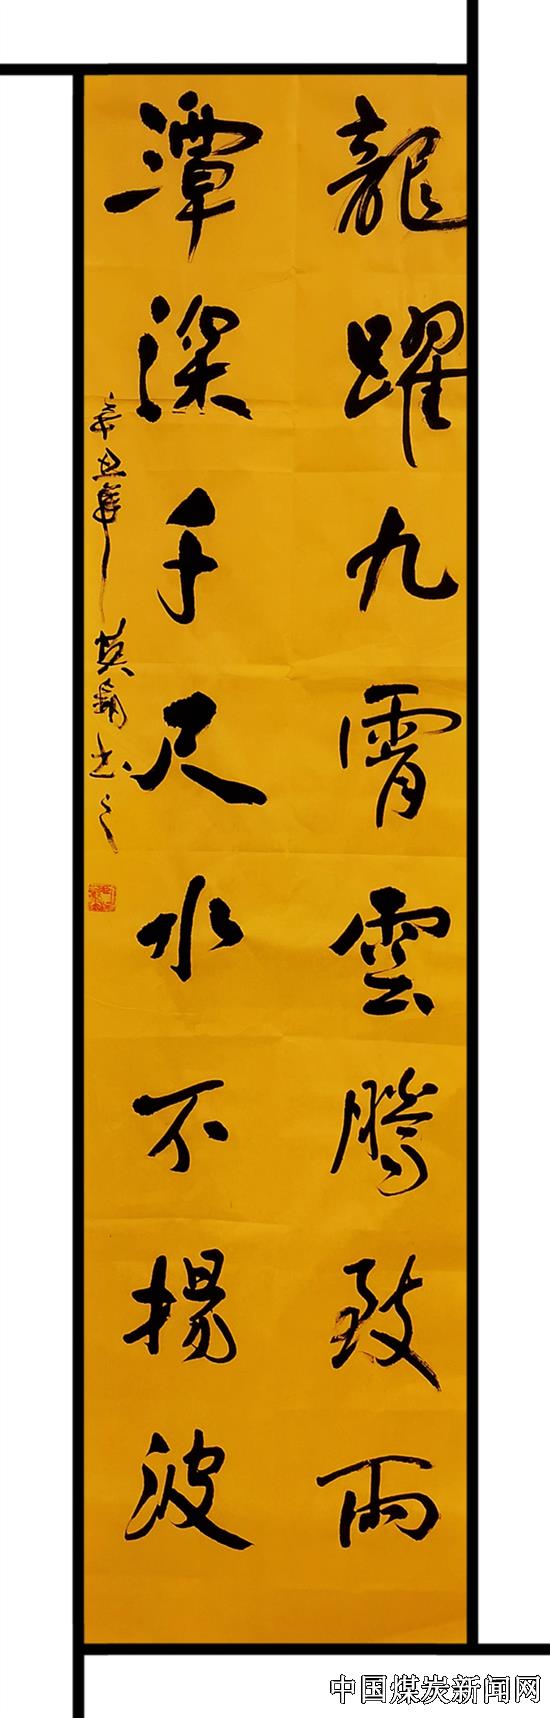 龍躍九霄雲騰致雨
潭深千尺水不揚波
辛丑年
中国煤炭新闻网